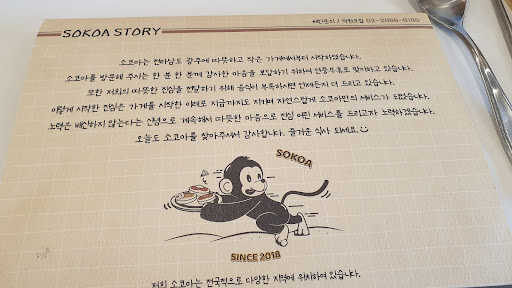 SOKOA STORY
체인문의 / 창업조합 02-2088-8180
소코아는 전라남도 광주에 따뜻하고 작은 가게에서부터 시작하였습니다.
소코아를 방문해 주시는 한 분 한 분께 감사한 마음을 보답하기 위하여 연중무휴로 맞이하고 있습니다.
또한 저희의 따뜻한 진심을 전달하기 위해 음식이 부족하시면 언제든지 더 드리고 있습니다.
이렇게 시작한 진심은 가게를 시작한 이래로 지금까지도 지키며 자연스럽게 소코아만의 서비스가 되었습니다.
노력은 배신하지 않는다는 신념으로 계속해서 따뜻한 마음으로 진심 어린 서비스를 드리고자 노력하겠습니다.
오늘도 소코아를 찾아주셔서 감사합니다. 즐거운 식사 되세요.
SOKOA
SINCE 2018
저희 소코아는 전국적으로 다양한 지역에 위치하여 있습니다.